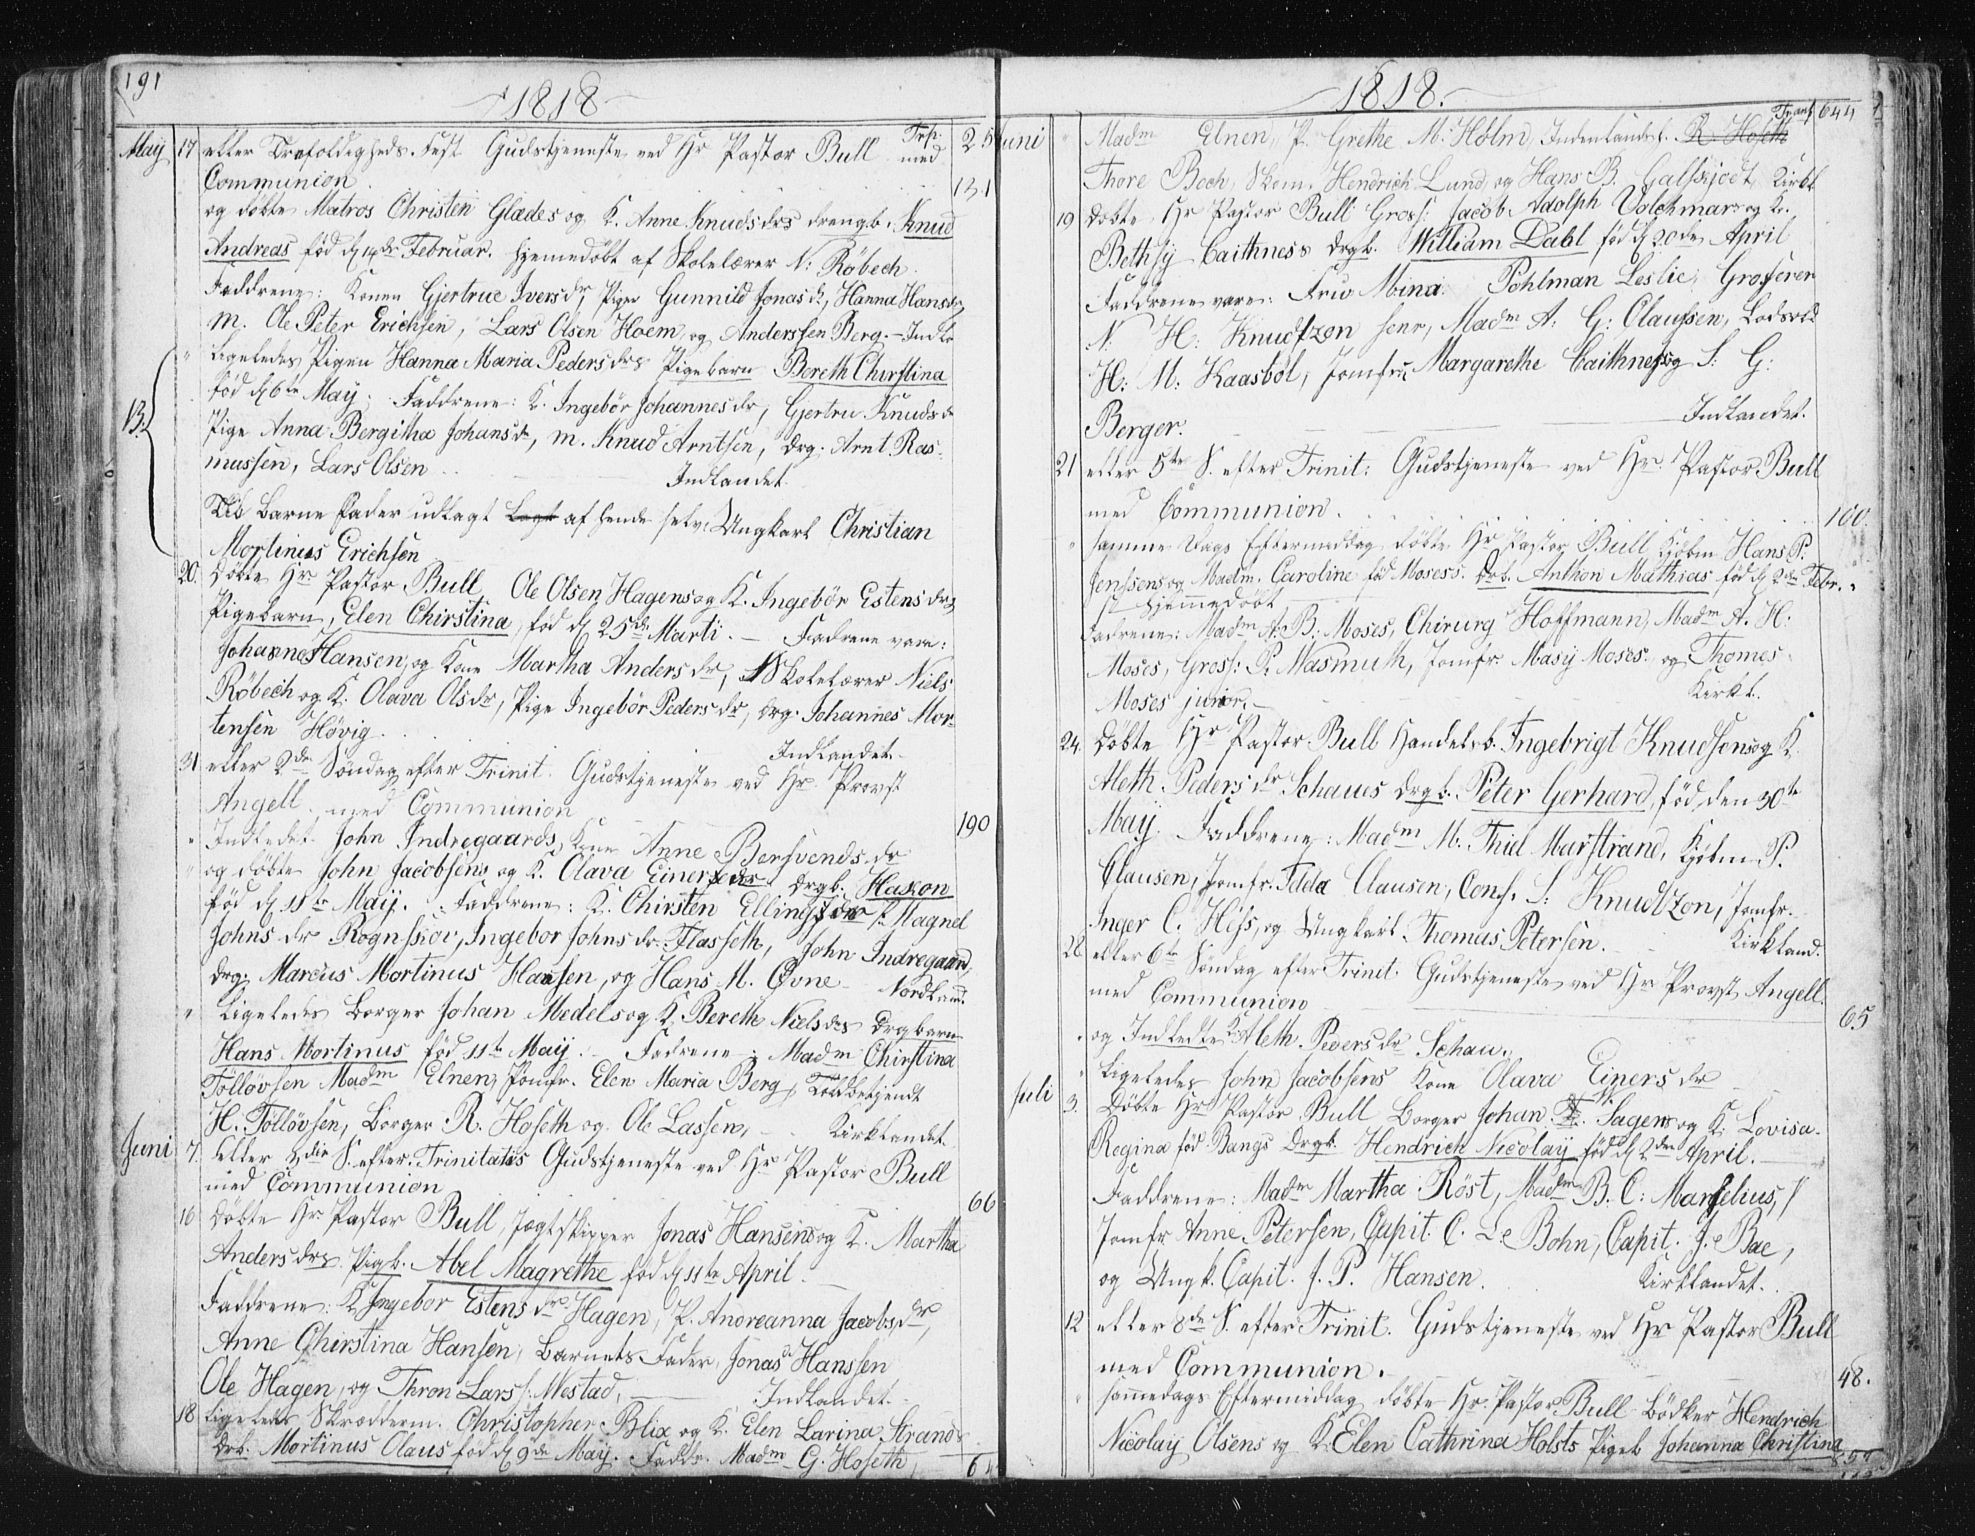 191
1818
May 17 eller Trefoldigheds Fest Gudstjeneste ved Hr Pastor Bull med
Communion 131
og döbte Matros Christen Glædes og K. Anne Knudsdrs drengb. Knud
Andreas född Februar. hjemedöbt af Skolelærer N: Röbech
Faddrene: Konen Gjertrue Iversdr, Piger Gunnild Jonasdr, Hanna Hansdr,
M. Ole Peter Erichsen, Lars Olsen Hoem, og Anderssen Berg. - Indl
" Ligeledes Pigen Hanna Maria Pedersdrs Pigebarn Bereth Chirstina
föd d 6te May. Faddrene: K. Ingebör Johannesdr, Gjertru Knudsdr
Pige Anna Bergitha Johansdr, M. Knud Arntsen, drg. Arnt Ras-
mussen, Lars Olsen Indlandet.
B. Til Barne Fader udlagt af hende selv: Ungkarl Christian
Mortinus Erichsen
20. Döbte Hr Pastor Bull Ole Olsen Hagens og K. Ingebör Estensdrs
Pigebarn, Elen Chirstina, föd d 25de Marti. - Fadrene vare:
Johannes Hansen, og Kone Martha Andersdr, Skolelærer Niels
Röbech og K. Olava Olsdr, Pige Ingebör Pedersdr, drg. Johannes Mor-
tensen Hövig. Indlandet.
31 eller 2den Söndag efter Trinit. Gudstjeneste ved Hr. Provst
Angell med Communion 190
" Indledet John Indregaards, Kone Anne Bersvendsdr
" og döbte John Jacobsens og K. Olava Einersdr drgb. Hakon
föd d 18te May. Faddrene: K. Chirsten Ellingsdr P. Magnel
Johnsdr Rognsiov, Ingebor Johnsdr Flasseth, John Indregaard,
drg. Marcus Mortinus Hansen, og Hans M. Övne Nordland.
" Ligeledes Borger Johan Medels og K. Bereth Nielsdrs Drgbarn
Hans Mortinus föd 11te May. Fadrene - Madm Chirstina
Töllövsen Madm Elnen, Jomfr. Elen Maria Berg, Toldbetjendt
H. Töllövsen, Borger R. Hoseth og Ole Lassen, - Kirklandet
Juni 7. eller 3die S. efter Trinitatis Gudstjeneste ved Hr Pastor Bull
med Communion 66
16 Döbte Hr Pastor Bull, Jægtskipper Jonas Hansens og K. Martha
Andersdrs Pigb. Abel Magrethe föd d 11te April.
Faddrene: K Ingebor Estensdr Hagen, P. Andreanna Jacobsdr,
Anne Chirstina Hansen, Barnets Fader, Jonas Hanssen
Ole Hagen, og Thron Larss. Nestad. Indlandet.
18 Ligeledes Skrædderm. Christopher Blix og K. Elen Larina Strands
Drb. Mortinus Olaus föd d 9de May. Faddr. Madm G. Hoseth,
1818.
Transp 644
Juni Madm Elnen, P. Grethe M: Holm, Indenlandsk. R. Hoseth
Thore Boch, Skom. Hendrich Lund, og Hans B. Kirkl
19 Döbte Hr Pastor Bull Gross: Jacob Adolph Volchmars og K.
Bethsy Caithness drgb. William Dahl föd d 20de April
Faddrene vare: Frue Mina Pohlman Leslie, Grosserer
N. H: Knudtzon senr, Madm A: G: Claussen, Lodsold
H: M: Kaasböl, Jomfru Margarethe Caithness og S: G:
Berger. Indlandet.
21 eller 5te S. efter Trinit: Gudstjeneste ved Hr. Pastor Bull
med Communion. 100.
" samme Dags Eftermiddag döbte Hr Pastor Bull Kjöbm Hans P.
Jenssens og Madm. Caroline föd Moses's. Drb. Anthon Mathias föd d 2de Febr.
hjemmedöbt
Fadrene: Madm A: B: Moses, Chirurg Hoffmann, Madm A. H:
Moses, Gross: P. Wasmuth, Jomfr. Masij Moses. og Thomes
Moses junior. Kirkl.
24. Döbte Hr Pastor Bull Handelsb. Ingebrigt Knudsens og K.
Aleth Pedersdr Schaues drgb. Peter Gerhard, föd den 30te
May. Faddrene: Madm M. Thiel Marstrand, Kjöbm P.
Clausen, Jomfr. Edda Clausen, Cons. S: Knudtzon, Jomfr.
Inger C. Hiss, og Ungkarl Thomas Petersen. Kirkland.
28 eller 6te Söndag efter Trinit. Gudstjeneste ved Hr Provst Angell
med Communion 65
" og Indledte K. Aleth Pedersdr Schau.
" Ligeledes John Jacobsens Kone Olava Einersdr
Juli 3. Döbte Hr Pastor Bull Borger Johan Sagens og K: Lovisa
Regina föd Bangs Drgb. Hendrich Nicolay föd d 2den April.
Faddrene: Madm Martha Röst, Madm B. C: Marselius,
Jomfr Anne Petersen, Capit. C. Le Bohn, Capit. J. Bae,
og Ungk. Capit. J. P. Hansen. Kirklandet.
12 eller 8de S. efter Trinit. Gudstjeneste ved Hr Pastor Bull
med Communion. 48.
" samedags Eftermiddag döbte Hr Pastor Bull Bödker Hendrich
Nicolay Olsens og K: Elen Cathrina Holsts Pigeb Johanna Christina
857